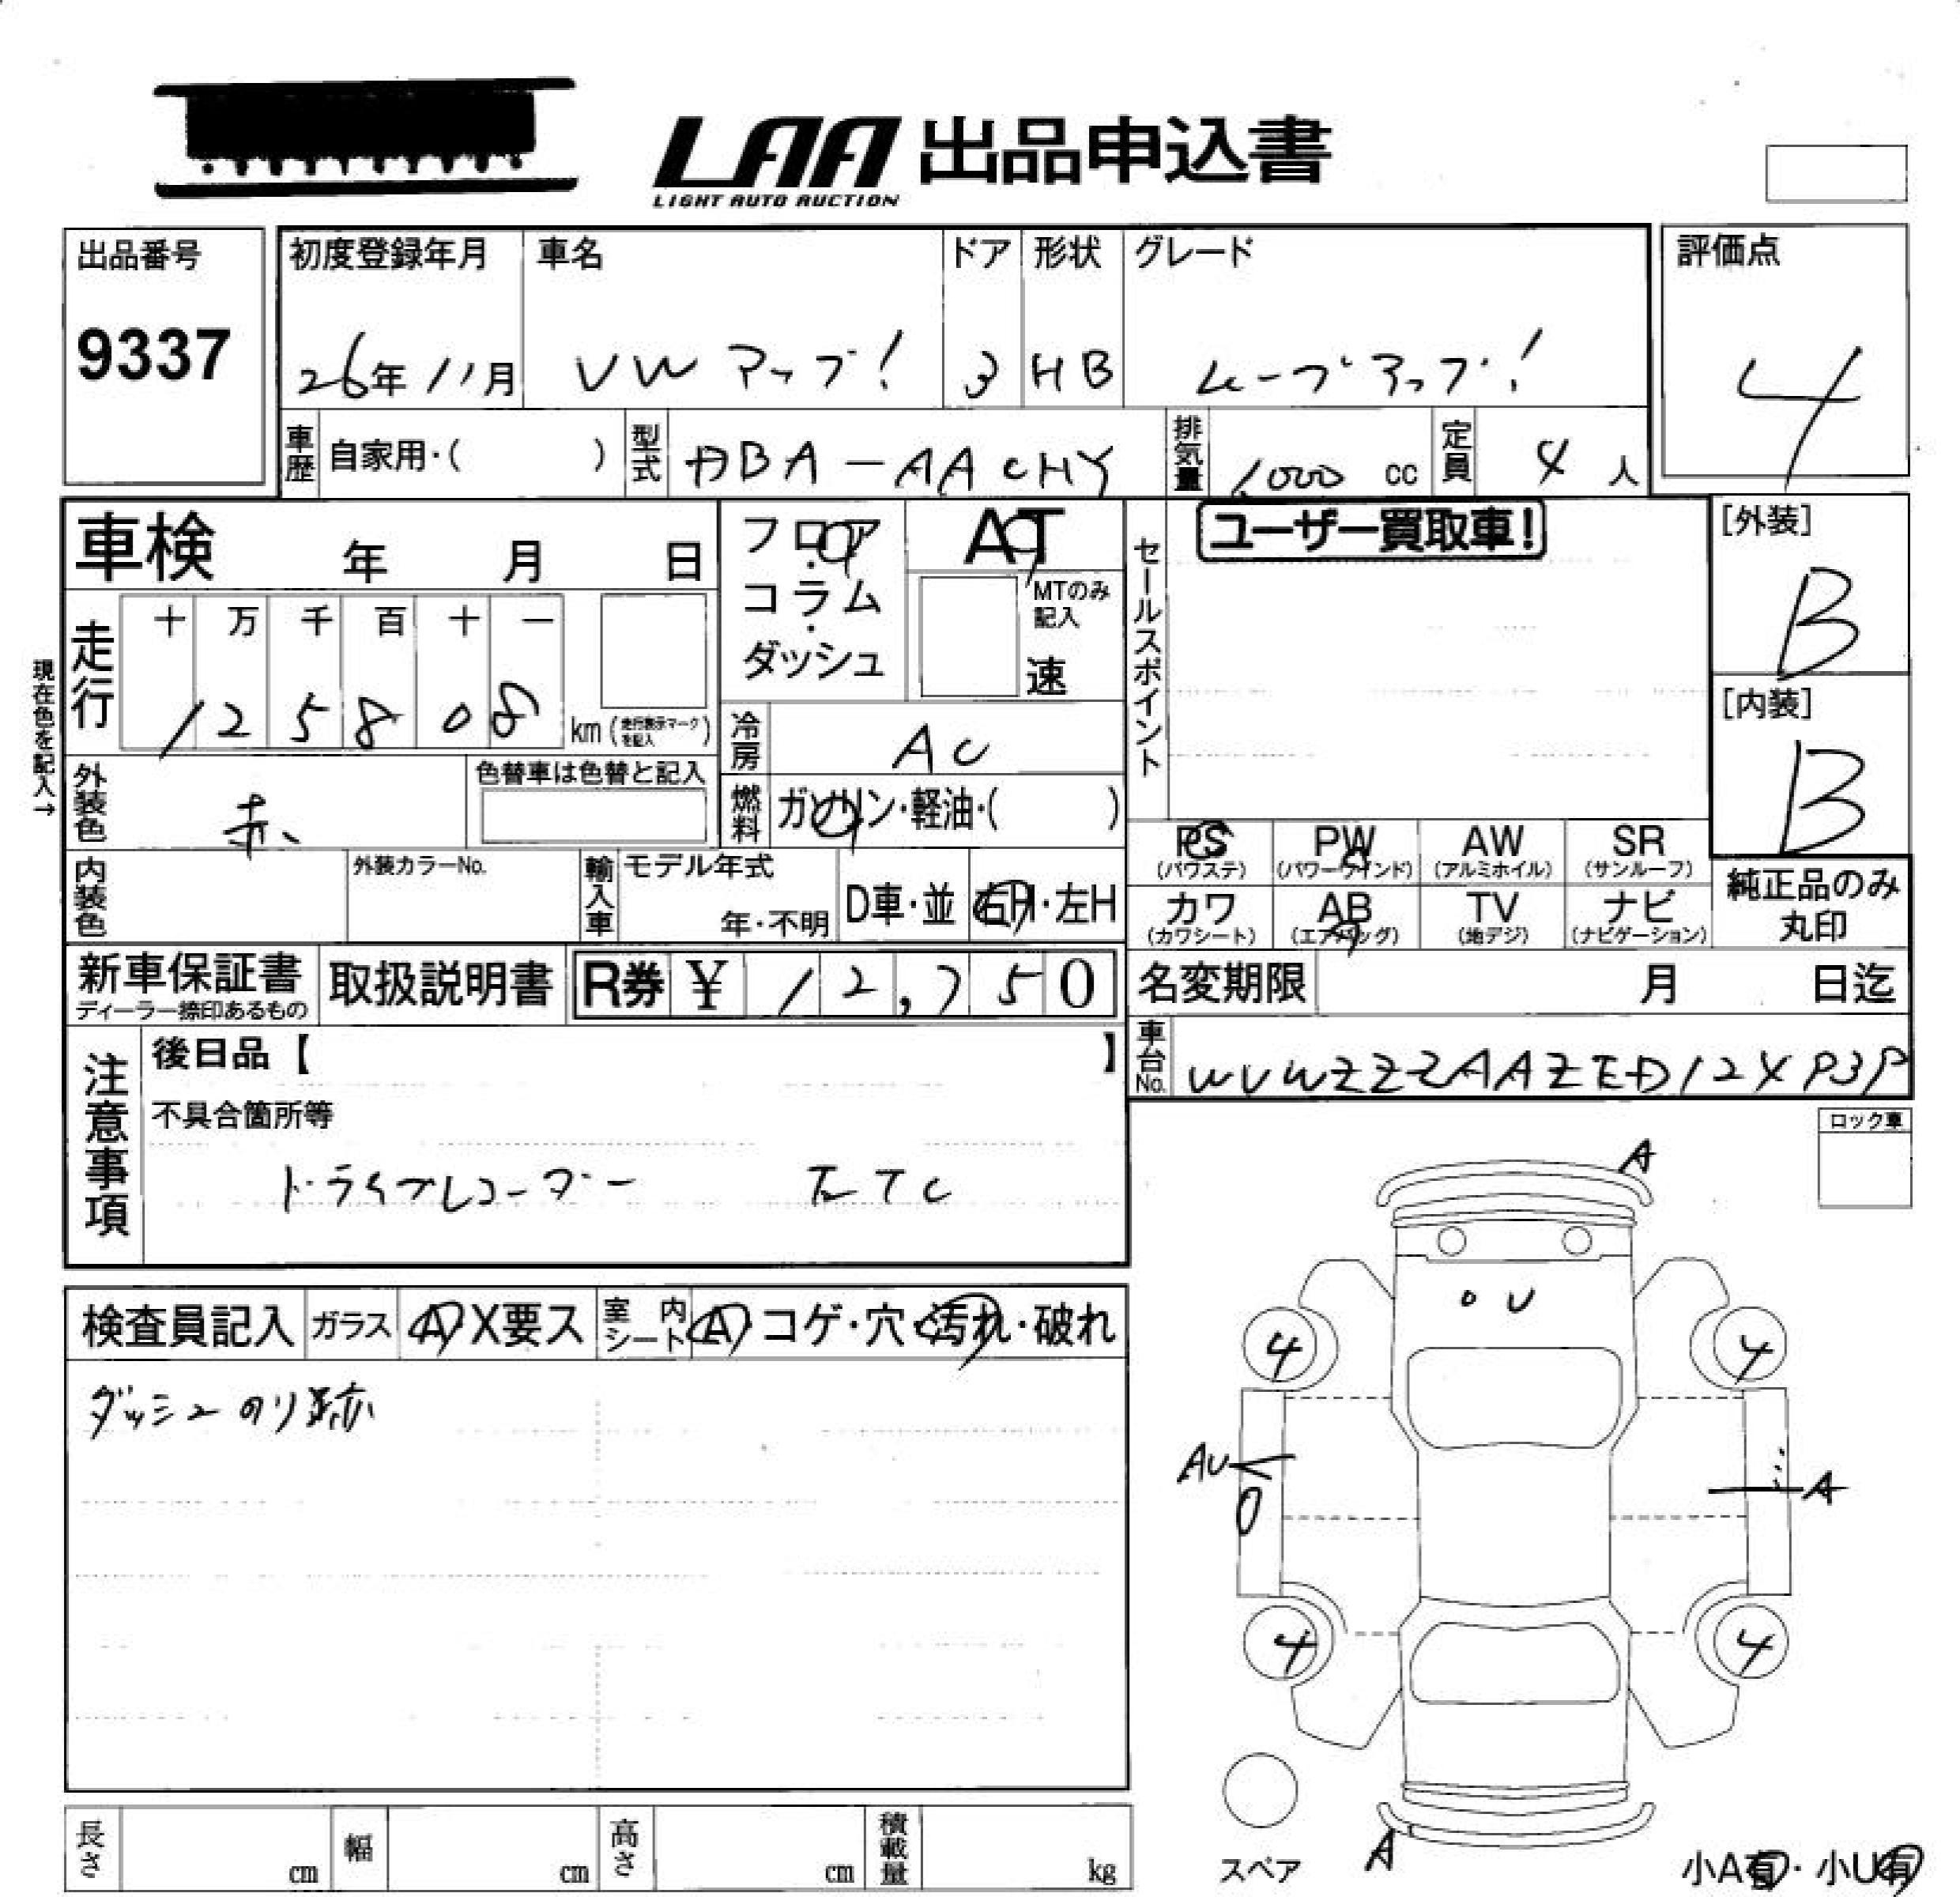 LAA 出品申込書
LIGHT AUTO AUCTION
出品番号
9337
初度登録年月
26年11月
車名
VW アップ!
ドア
3
形状
HB
グレード
ムーブアップ!
評価点
4
車歴
自家用・( )
型式
DBA-AACHY
排気量
1,000 cc
定員
4 人
車検 年 月 日
フロア・コラム・ダッシュ
AT
MTのみ記入
速
セールスポイント
ユーザー買取車!
[外装]
B
[内装]
B
現在色を記入→
走行
十 万 千 百 十 一
1 2 5 8 0 8
km (走行表示マークを記入)
冷房
AC
外装色
赤
色替車は色替と記入
燃料
ガソリン・軽油・( )
PS (パワステ)
PW (パワーウインド)
AW (アルミホイル)
SR (サンルーフ)
カワ (カワシート)
AB (エアバッグ)
TV (地デジ)
ナビ (ナビゲーション)
純正品のみ丸印
内装色
外装カラーNo.
輸入車
モデル年式
年・不明
D車・並
右H・左H
新車保証書
ディーラー捺印あるもの
取扱説明書
R券 ¥ 12,750
名変期限 月 日迄
車台No.
注意事項
後日品【 】
不具合箇所等
ドライブレコーダー ETC
ロック車
検査員記入
ガラス
A X要ス
室内シート
A・コゲ・穴・汚れ・破れ
ダッシュのり跡
A
U
4
4
AU
A
4
4
スペア
A
小A有・小U有
長さ cm
幅 cm
高さ cm
積載量 kg